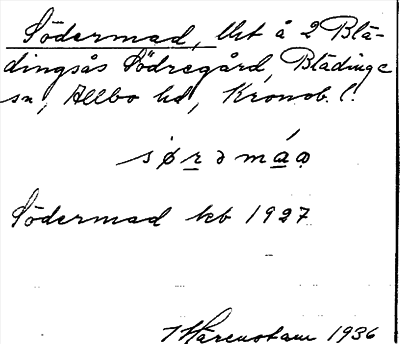 Södermad, lht å 2 Blä-
dingsås Södregård, Blädinge
sn, Allbo hd, Kronob. l.
sørəmáɑ
Södermad kb 1927
Härenstam 1936